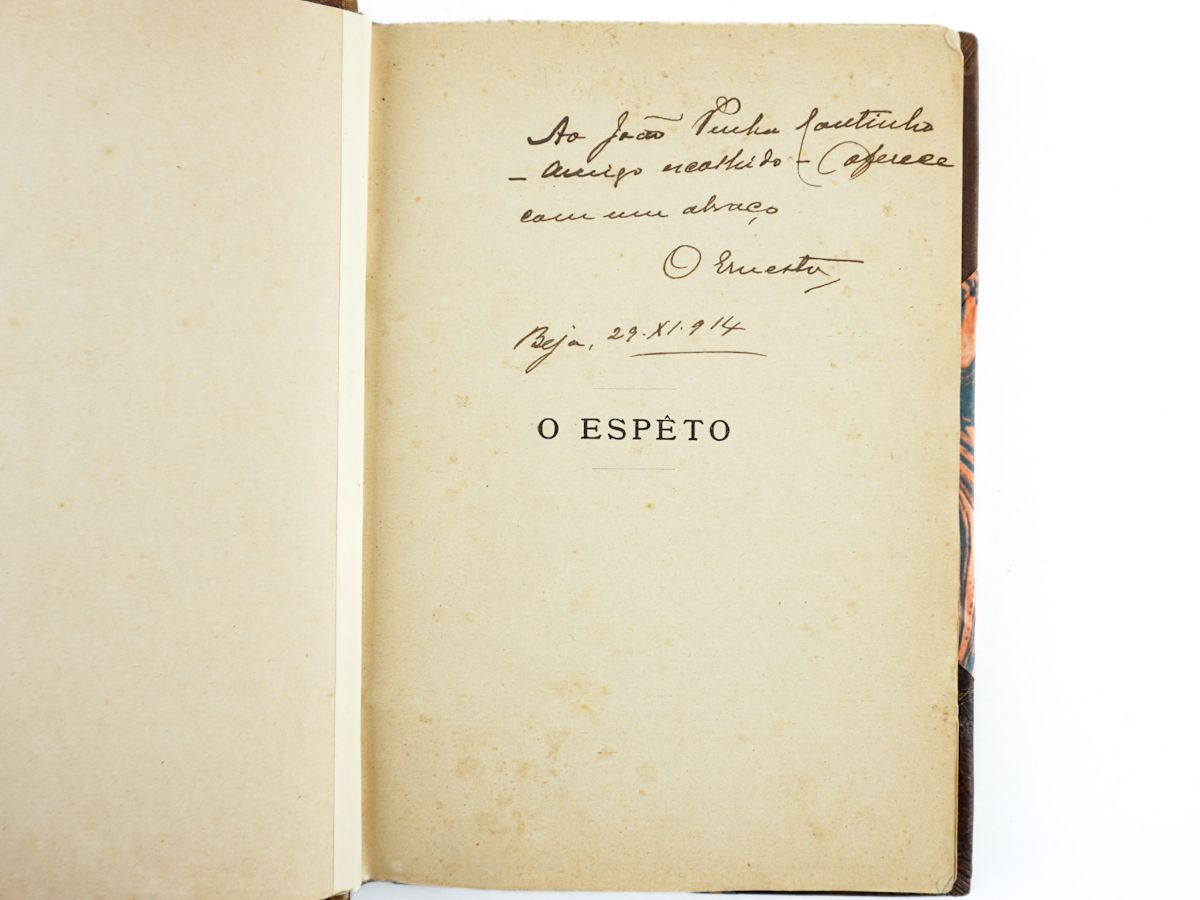 Ao João Penha Coutinho
- amigo escolhido - oferece
com um abraço
O Ernesto
Beja, 29.XI.914
O ESPÊTO